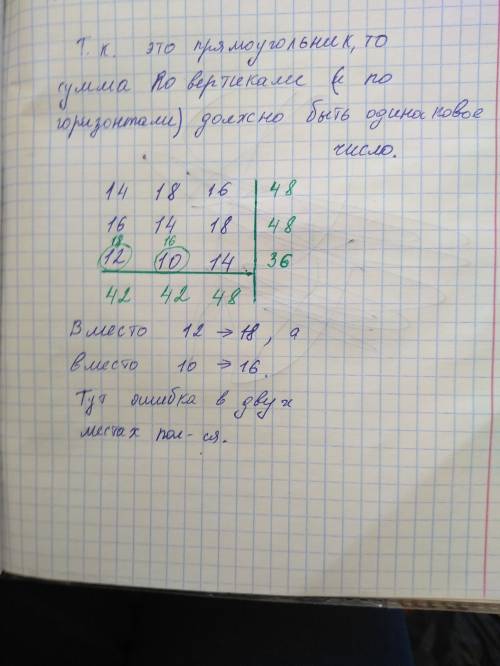 Т.к. это прямоугольник, то
сумма по вертикали (и по
горизонтали) должно быть одинаковое
число.
14 18 16 48
16 14 18 48
18 16
12 10 14 36
42 42 48
Вместо 12 → 18, а
вместо 10 → 16.
Тут ошибка в двух
местах пол-ся.